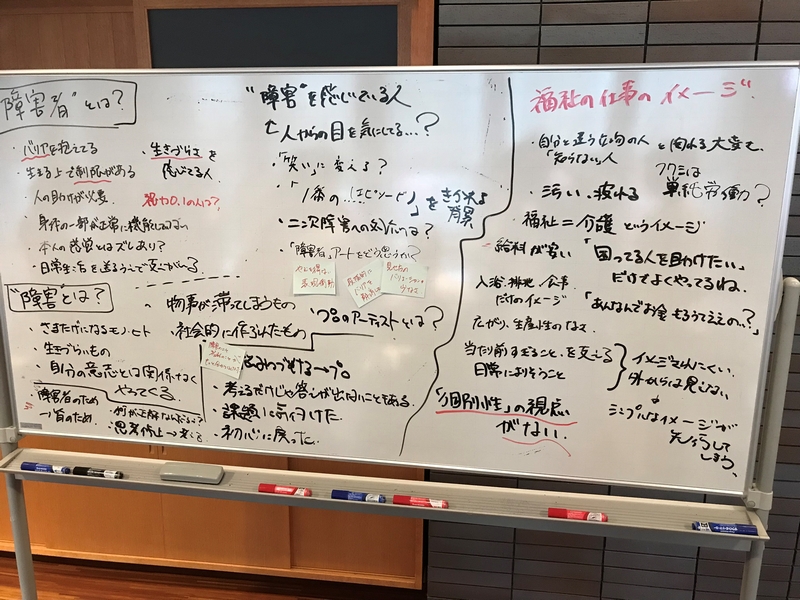 "障害者"とは?
・バリアを抱えてる
・生きる上で制限がある
・人の助けが必要
・身体の一部が正常に機能してない
・本人の感覚とはズレあり?
・日常生活を送るうえで支障がでる。
・生きづらさを
感じてる人
視力0.1の人は?
"障害"とは?
・さまたげになるモノ・ヒト
・生きづらいもの
・自分の意志とは関係なく
やってくる。
・物事が滞ってしまうもの
・社会的に作られたもの
・障害者のため
→皆のため
・思考停止→
"障害"を感じている人
人からの目を気にしてる…?
・「笑い」に変える?
・「1番の…エピソード」を
背景
・二次障害への対応は?
・「障害者」アートをどう思うか?
・プロのアーティストとは?
・考えるだけじゃ答えが出ないこともある。
・課題に気づけた。
・初心に戻った。
福祉の仕事のイメージ
・自分と違う方向の人と関わる大変さ
「知らない」人
フクシは
単純労働?
・汚い、疲れる
・福祉=介護というイメージ
・給料が安い
「困ってる人を助けたい」
だけでよくやってるね。
入浴・排泄・食事
だけのイメージ
「あんなんでお金もらうてええの…?」
広がり、生産性のなさ
当たり前すぎること、を支える
日常によりそうこと
イメージされにくい、
外からは見えない
シンプルなイメージが
先行して
しまう。
「個別性」の視点
がない。